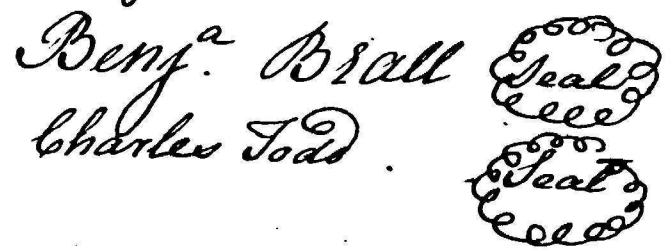 Benjª. Beall Seal
Charles Todd. Seal